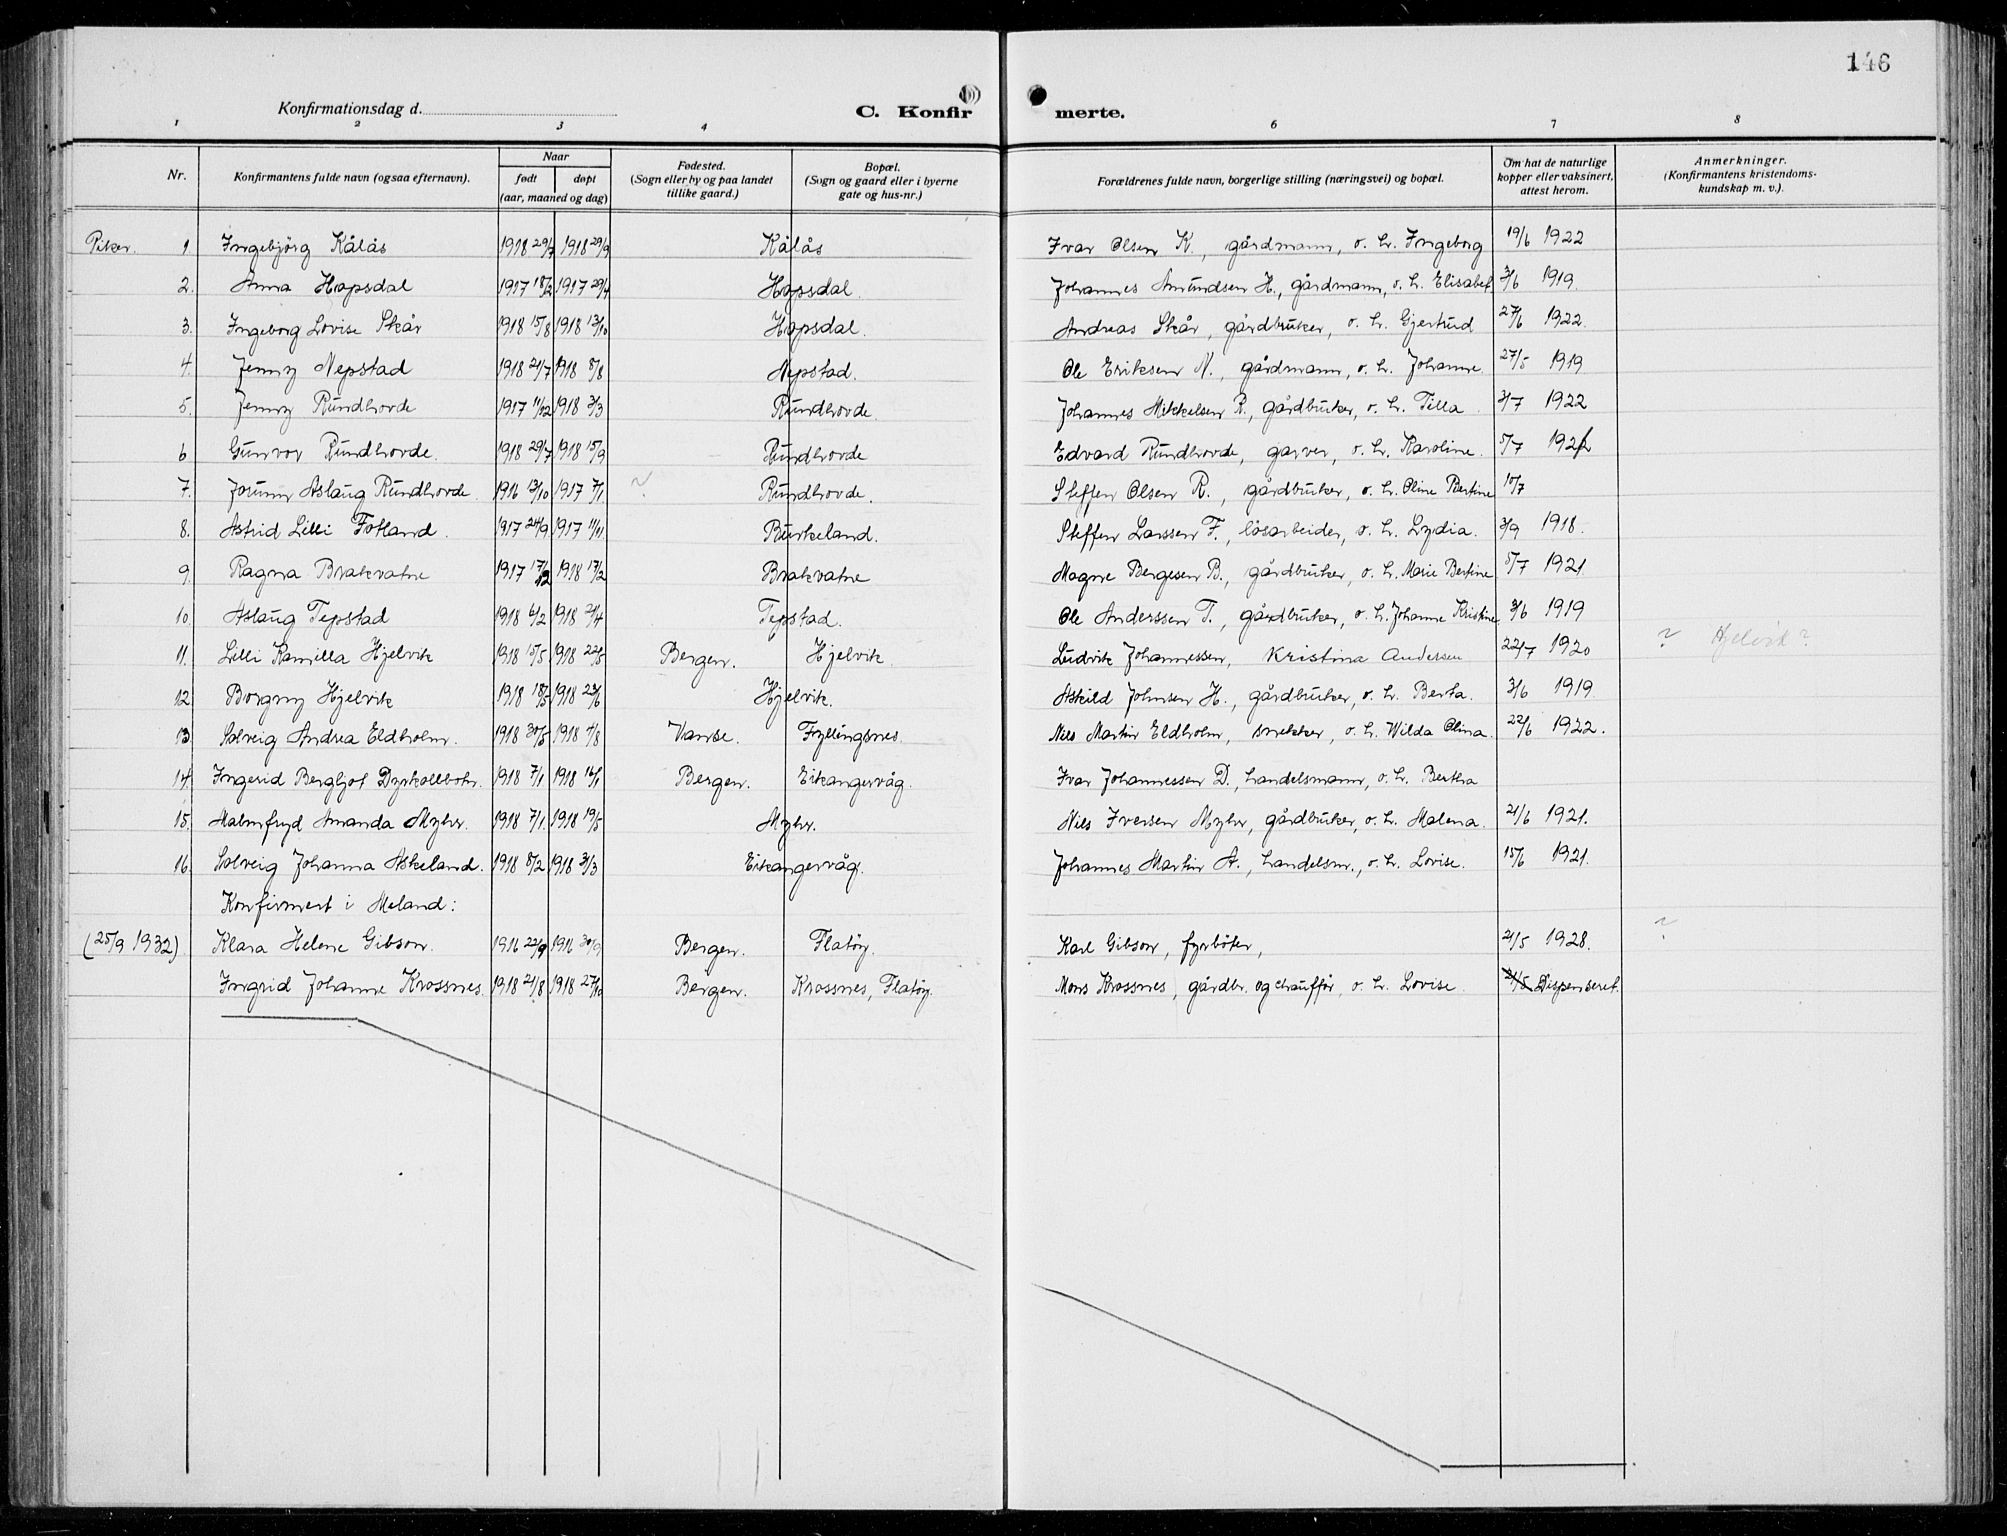 146
Konfirmationsdag d.
C. Konfirmerte.
1 2 3 4 6 7 8
Nr.
Konfirmantens fulde navn (ogsaa efternavn).
Naar
født døpt
(aar, maaned og dag)
Fødested.
(Sogn eller by og paa landet
tillike gaard.)
Bopæl.
(Sogn og gaard eller i byerne
gate og hus-nr.)
Forældrenes fulde navn, borgerlige stilling (næringsvei) og bopæl.
Om hat de naturlige
kopper eller vaksinert,
attest herom.
Anmerkninger.
(Konfirmantens kristendoms-
kundskap m. v.).
Piker. 1. Ingebjörg Kålås 1918 29/7 1918 29/9 Kålås Ivar Olsen K., gårdmann, o. h. Ingeborg 19/6 1922
2. Anna Hopsdal 1917 18/2 1917 29/4 Hopsdal. Johannes Amundsen H., gårdmann, o. h. Elisabet 3/6 1919
3. Ingeborg Lovise Skår 1918 15/8 1918 13/10 Hopsdal. Andreas Skår, gårdbruker, o. h. Gjertrud 27/6 1922.
4. Jenny Nepstad 1918 21/7 1918 8/8 Nepstad. Ole Eriksen N., gårdmann, o. h. Johanne 27/5 1919
5. Jenny Rundhovde 1917 11/12 1918 3/3 Rundhovde Johannes Mikkelsen R., gårdbruker, o. h. Tilla. 3/7 1922
6 Gunvor Rundhovde. 1918 29/7 1918 15/9 Rundhovde Edvard Rundhovde, garver, o. h. Karoline. 5/7
7. Jorunn Aslaug Rundhovde. 1916 13/10 1917 7/1 ? Rundhovde. Steffen Olsen R., gårdbruker, o. h. Oline Bertine 10/7
8. Astrid Lilli Fotland. 1917 24/9 1917 11/11 Burkeland. Steffen Larssen F., lösarbeider, o. h. Lydia. 3/9 1918.
9. Ragna Brakvatne 1917 17/12 1918 17/2 Brakvatne Magne Bergesen B., gårdbruker, o. h. Marie Bertine 5/7 1921
10. Aslaug Tepstad 1918 6/2 1918 21/4 Tepstad. Ole Anderssen T., gårdbruker, o. h. Johanne Kristine 3/6 1919
11. Lilli Kamilla Hjelvik 1918 15/5 1918 22/5 Bergen. Hjelvik. Ludvik Johannessen, Kristina Andersen 22/7 1920 ? Hjelvik?
12. Borgny Hjelvik 1918 18/5 1918 23/6 Hjelvik. Askild Johnsen H., gårdbruker, o. h. Berta. 3/6 1919.
13 Solveig Andrea Eldholm. 1918 30/5 1918 4/8 Vanse. Fyllingsnes. Nils Martin Eldholm, snekker, o. h. Wilda Olina. 22/6 1922.
14. Ingerid Bergljot Dyrkollbotn. 1918 7/1 1918 16/1 Bergen. Eikangervåg. Ivar Johannessen D., handelsmann, o. h. Bertha
15. Malmfryd Amanda Myhr. 1918 7/1. 1918 19/5 Myhr. Nils Iversen Myhr, gårdbruker, o. h. Malena. 21/6 1921.
16. Solveig Johanna Askeland. 1918 8/2 1918 31/3 Eikangervåg. Johannes Martin A., handelsm., o. h. Lovise. 15/6 1921.
Konfirmert i Meland:
(25/9 1932) Klara Helene Gibson. 1916 22/9 1916 30/9 Bergen. Flatöy. Karl Gibson, fyrböter, 21/5 1928. ?
Ingrid Johanne Krossnes. 1918 21/8 1918 27/10 Bergen. Krossnes, Flatöy. Mons Krossnes, gårdbr. og chaufför, o. h. Lovise. Dispenseret.